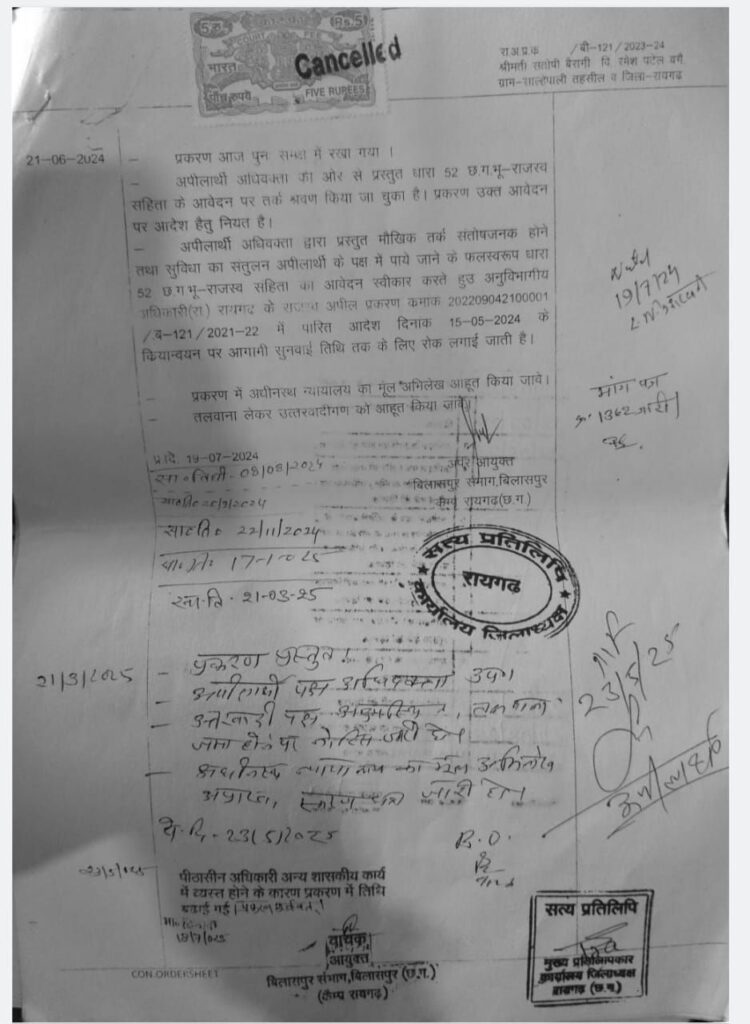 5 रु. Rs.5
COURT FEE
भारत
पाँच रुपये FIVE RUPEES
Cancelled
रा.अ.प्र.क /बी-121/2023-24
श्रीमती सतोषी बैरागी वि. रमेश पटेल वगै.
ग्राम-साल्हेपाली तहसील व जिला-रायगढ़
21-06-2024
– प्रकरण आज पुन समक्ष में रखा गया ।
– अपीलार्थी अधिवक्ता की ओर से प्रस्तुत धारा 52 छ.ग.भू-राजस्व
सहिता के आवेदन पर तर्क श्रवण किया जा चुका है। प्रकरण उक्त आवेदन
पर आदेश हेतु नियत है।
– अपीलार्थी अधिवक्ता द्वारा प्रस्तुत मौखिक तर्क सतोषजनक होने
तथा सुविधा का संतुलन अपीलार्थी के पक्ष में पाये जाने के फलस्वरूप धारा
52 छ.ग.भू-राजस्व सहिता का आवेदन स्वीकार करते हुउ अनुविभागीय
अधिकारी(रा.) रायगढ़ के राजस्व अपील प्रकरण कमाक 202209042100001
/ब-121/2021-22 में पारित आदेश दिनाक 15-05-2024 के
कियान्वयन पर आगामी सुनवाई तिथि तक के लिए रोक लगाई जाती है।
– प्रकरण में अधीनस्थ न्यायालय का मूल अभिलेख आहूत किया जावे।
– तलवाना लेकर उत्तरवादीगण को आहूत किया जावे।
19/7/24
मांग पत्र
क्र. 1362 जारी
प्र.दि. 19-07-2024
08/08/2024
अपर आयुक्त
बिलासपुर संभाग,बिलासपुर
कैम्प रायगढ़(छ.ग.)
22/11/2024
17-1-025
21-03-25
सत्य प्रतिलिपि
रायगढ़
कार्यालय जिलाध्यक्ष
21/3/025
– प्रकरण प्रस्तुत।
– अपीलार्थी पक्ष अधिवक्ता उप०
– उत्तरवादी पक्ष अनुपस्थित, तलवाना
जमा होने पर नोटिस जारी हो।
– अधीनस्थ न्यायालय का मूल अभिलेख
अप्राप्त, स्मरण पत्र जारी हो।
23/5/2025
23/5/25
23/5/025
पीठासीन अधिकारी अन्य शासकीय कार्य
में व्यस्त होने के कारण प्रकरण में तिथि
बढ़ाई गई।
18/7/025
वाचक
आयुक्त
बिलासपुर संभाग,बिलासपुर (छ.ग.)
(कैम्प रायगढ़)
सत्य प्रतिलिपि
मुख्य प्रतिलिपिकार
कार्यालय जिलाध्यक्ष
रायगढ़ (छ.ग.)
CON.ORDERSHEET